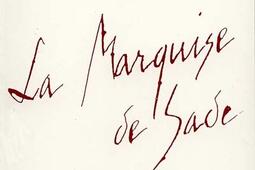 La Marquise
de Sade